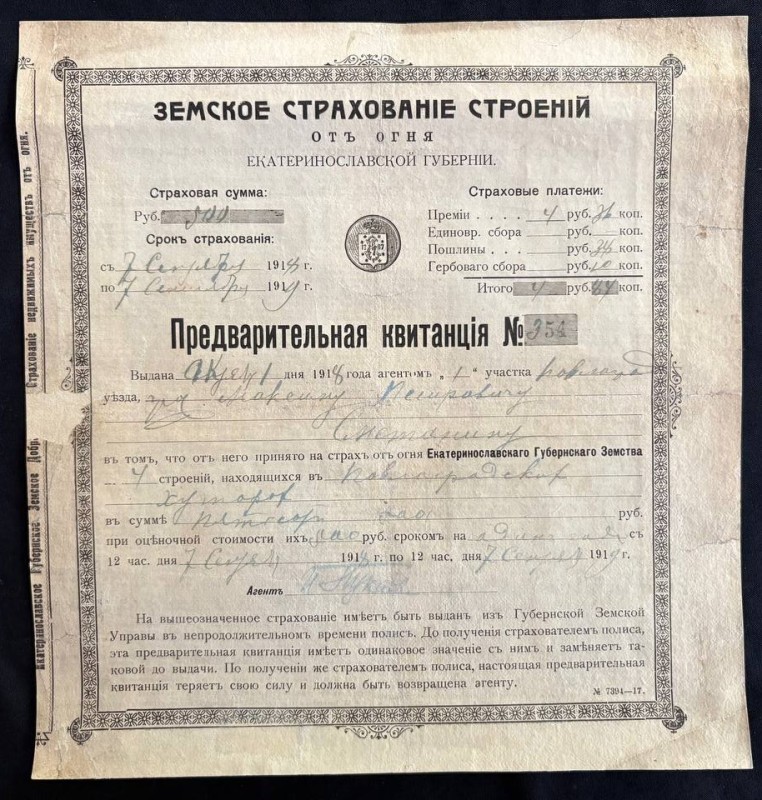 ЗЕМСКОЕ СТРАХОВАНІЕ СТРОЕНІЙ
ОТЪ ОГНЯ
ЕКАТЕРИНОСЛАВСКОЙ ГУБЕРНІИ.
Страховая сумма:
Руб. 500
Срокъ страхованія:
съ 7 1918 г.
по 7 1919 г.
Страховые платежи:
Преміи . . . . 4 руб. 36 коп.
Единовр. сбора руб. коп.
Пошлины руб. коп.
Гербоваго сбора руб. 10 коп.
Итого 4 руб. коп.
Предварительная квитанція № 354
Выдана дня 1918 года агентомъ „1“ участка
уѣзда, Петровичу
Сметанину
въ томъ, что отъ него принято на страхъ отъ огня Екатеринославскаго Губернскаго Земства
4 строеній, находящихся въ
хуторов
въ суммѣ руб.
при оцѣночной стоимости ихъ руб. срокомъ на съ
12 час. дня 7 1918 г. по 12 час, дня 7 1919 г.
Агентъ
На вышеозначенное страхованіе имѣетъ быть выданъ изъ Губернской Земской
Управы въ непродолжительномъ времени полисъ. До полученія страхователемъ полиса,
эта предварительная квитанція имѣетъ одинаковое значеніе съ нимъ и замѣняетъ та-
ковой до выдачи. По полученіи же страхователемъ полиса, настоящая предварительная
квитанція теряетъ свою силу и должна быть возвращена агенту.
№ 7394—17.
Страхованіе недвижимыхъ имуществъ отъ огня.
Екатеринославское Губернское Земское Добр.